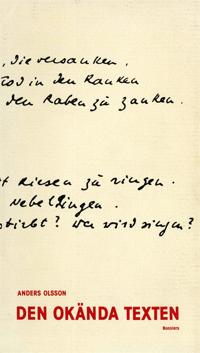 , die versanken,
Tod in den Ranken
den Raben zu zanken.
t Riesen zu ringen.
Nebeldingen.
stirbt? Wer wird singen?
ANDERS OLSSON
DEN OKÄNDA TEXTEN
Bonniers